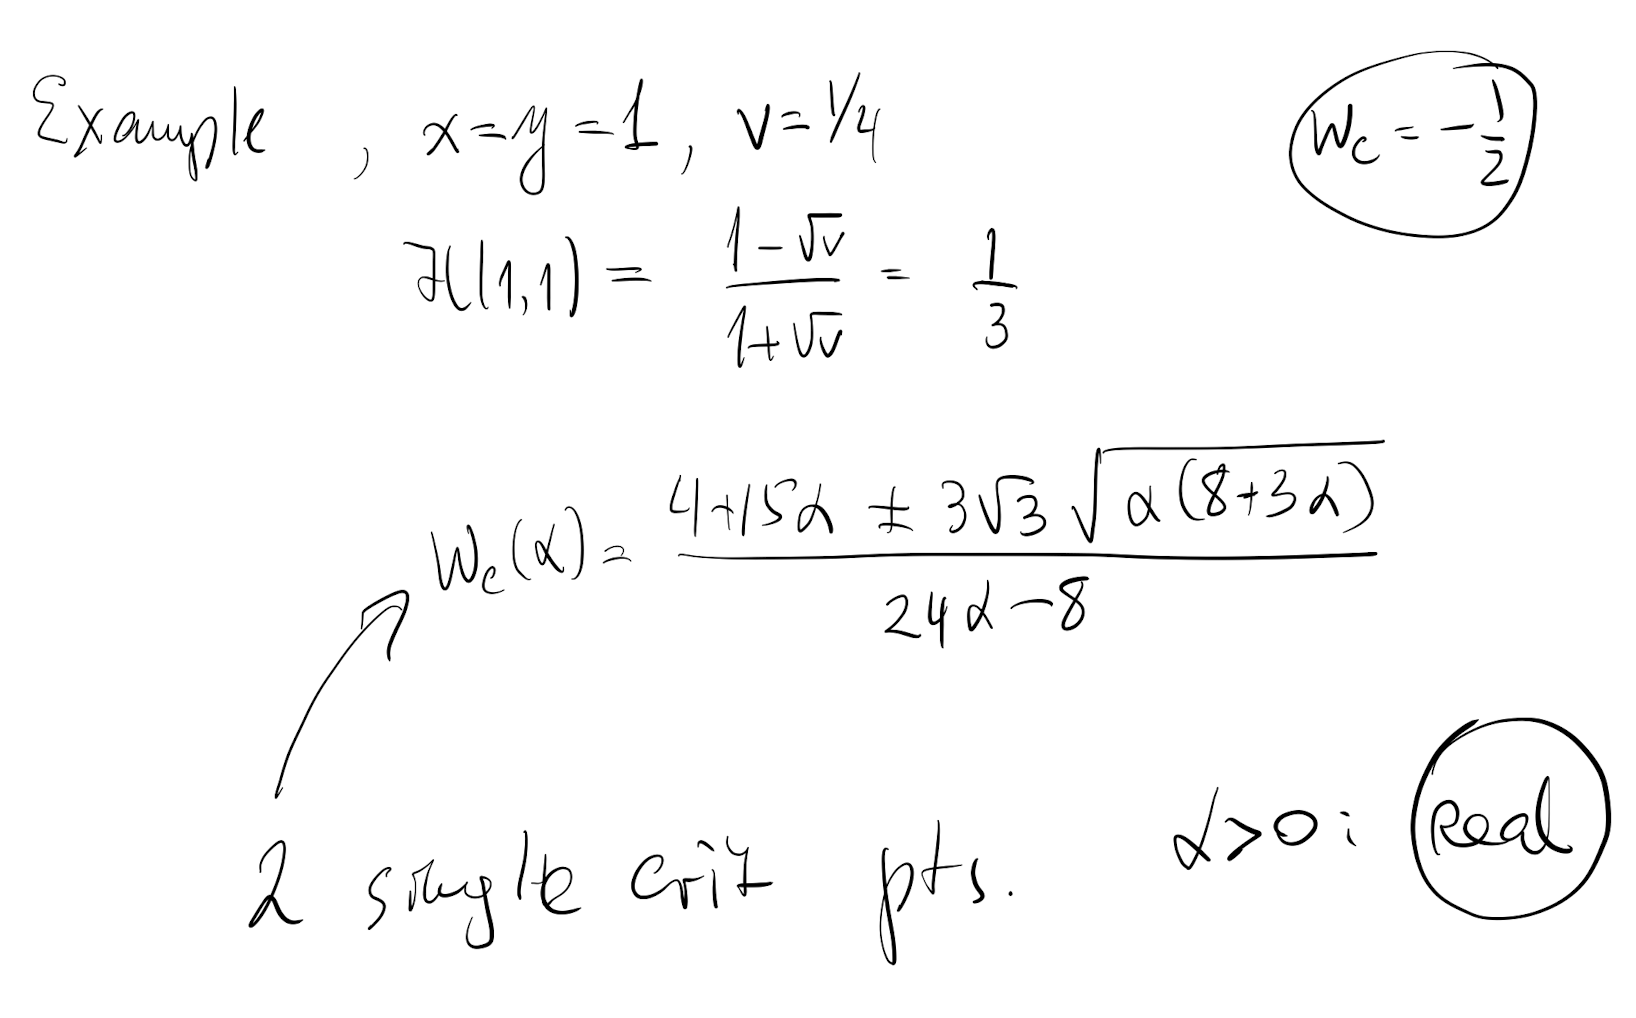 Example, x=y=1, v=1/4
W_c = -1/2
H(1,1) = (1-√v)/(1+√v) = 1/3
W_c(α) = (4+15α ± 3√3 √(α(8+3α)))/(24α-8)
2 single crit pts. α>0: Real